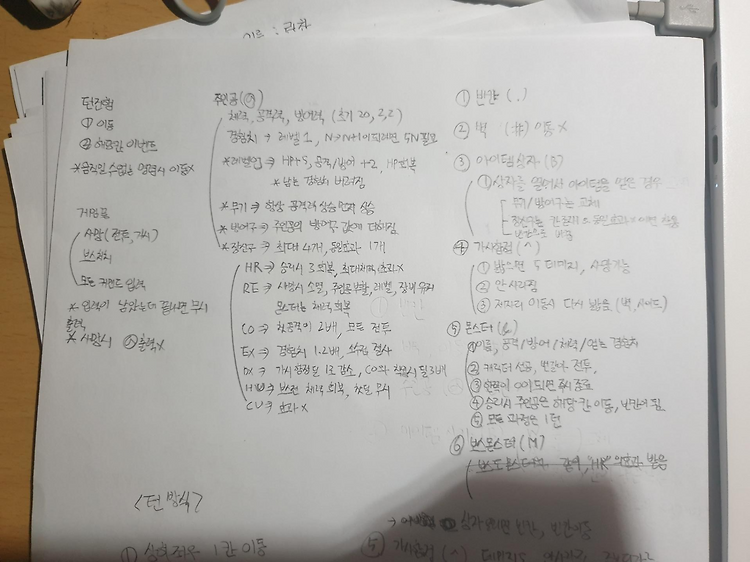 턴진행
① 이동
② 해당칸 이벤트
* 움직일 수 없는 명령시 이동X
게임끝
사망 (전투, 가시)
보스처치
모든 커맨드 입력
* 입력이 남았는데 끝나면 무시
출력
* 사망시 @ 출력X
주인공 (@)
체력, 공격력, 방어력 (초기 20, 2, 2)
경험치 → 레벨 1, N→N+1이 되려면 5N 필요
* 레벨업 → HP+5, 공격/방어 +2, HP회복
* 남는 경험치 버려짐
* 무기 → 공격력 상승
* 방어구 → 주인공의 방어구 값에 더해짐
* 장신구 → 최대 4개, 동일효과 1개
HR → 승리시 3 회복, 최대체력 초과X
RE → 사망시 소멸, 주인공부활, 레벨, 장비 유지
몬스터는 체력 회복
CO → 첫공격이 2배, 모든 전투
EX → 경험치 1.2배, 소수점 절사
DX → 가시함정 뎀 1로 감소, CO와 착용시 뎀 3배
HU → 보스전 체력 회복, 첫뎀 무시
CU → 효과X
① 빈칸 (.)
② 벽 (#) 이동X
③ 아이템 상자 (B)
① 상자를 열어서 아이템을 얻는 경우
무기/방어구는 교체
장신구는
빈칸으로 바뀜
④ 가시함정 (^)
① 밟으면 5 데미지, 사망가능
② 안 사라짐
③ 제자리 이동시 다시 밟음 (벽, 사이드)
⑤ 몬스터 (&)
① 이름, 공격/방어/체력/얻는 경험치
② 캐릭터 선공, 번갈아 전투,
③ 체력이 0이 되면 즉시 종료
④ 승리시 주인공은 해당 칸 이동, 빈칸이 됨
⑤ 모든 과정은 1턴
⑥ 보스몬스터 (M)
보스도 몬스터 "HR" 효과 받음
<턴 방식>
① 상하좌우 1칸 이동
⑤ 가시함정 (^) 데미지5